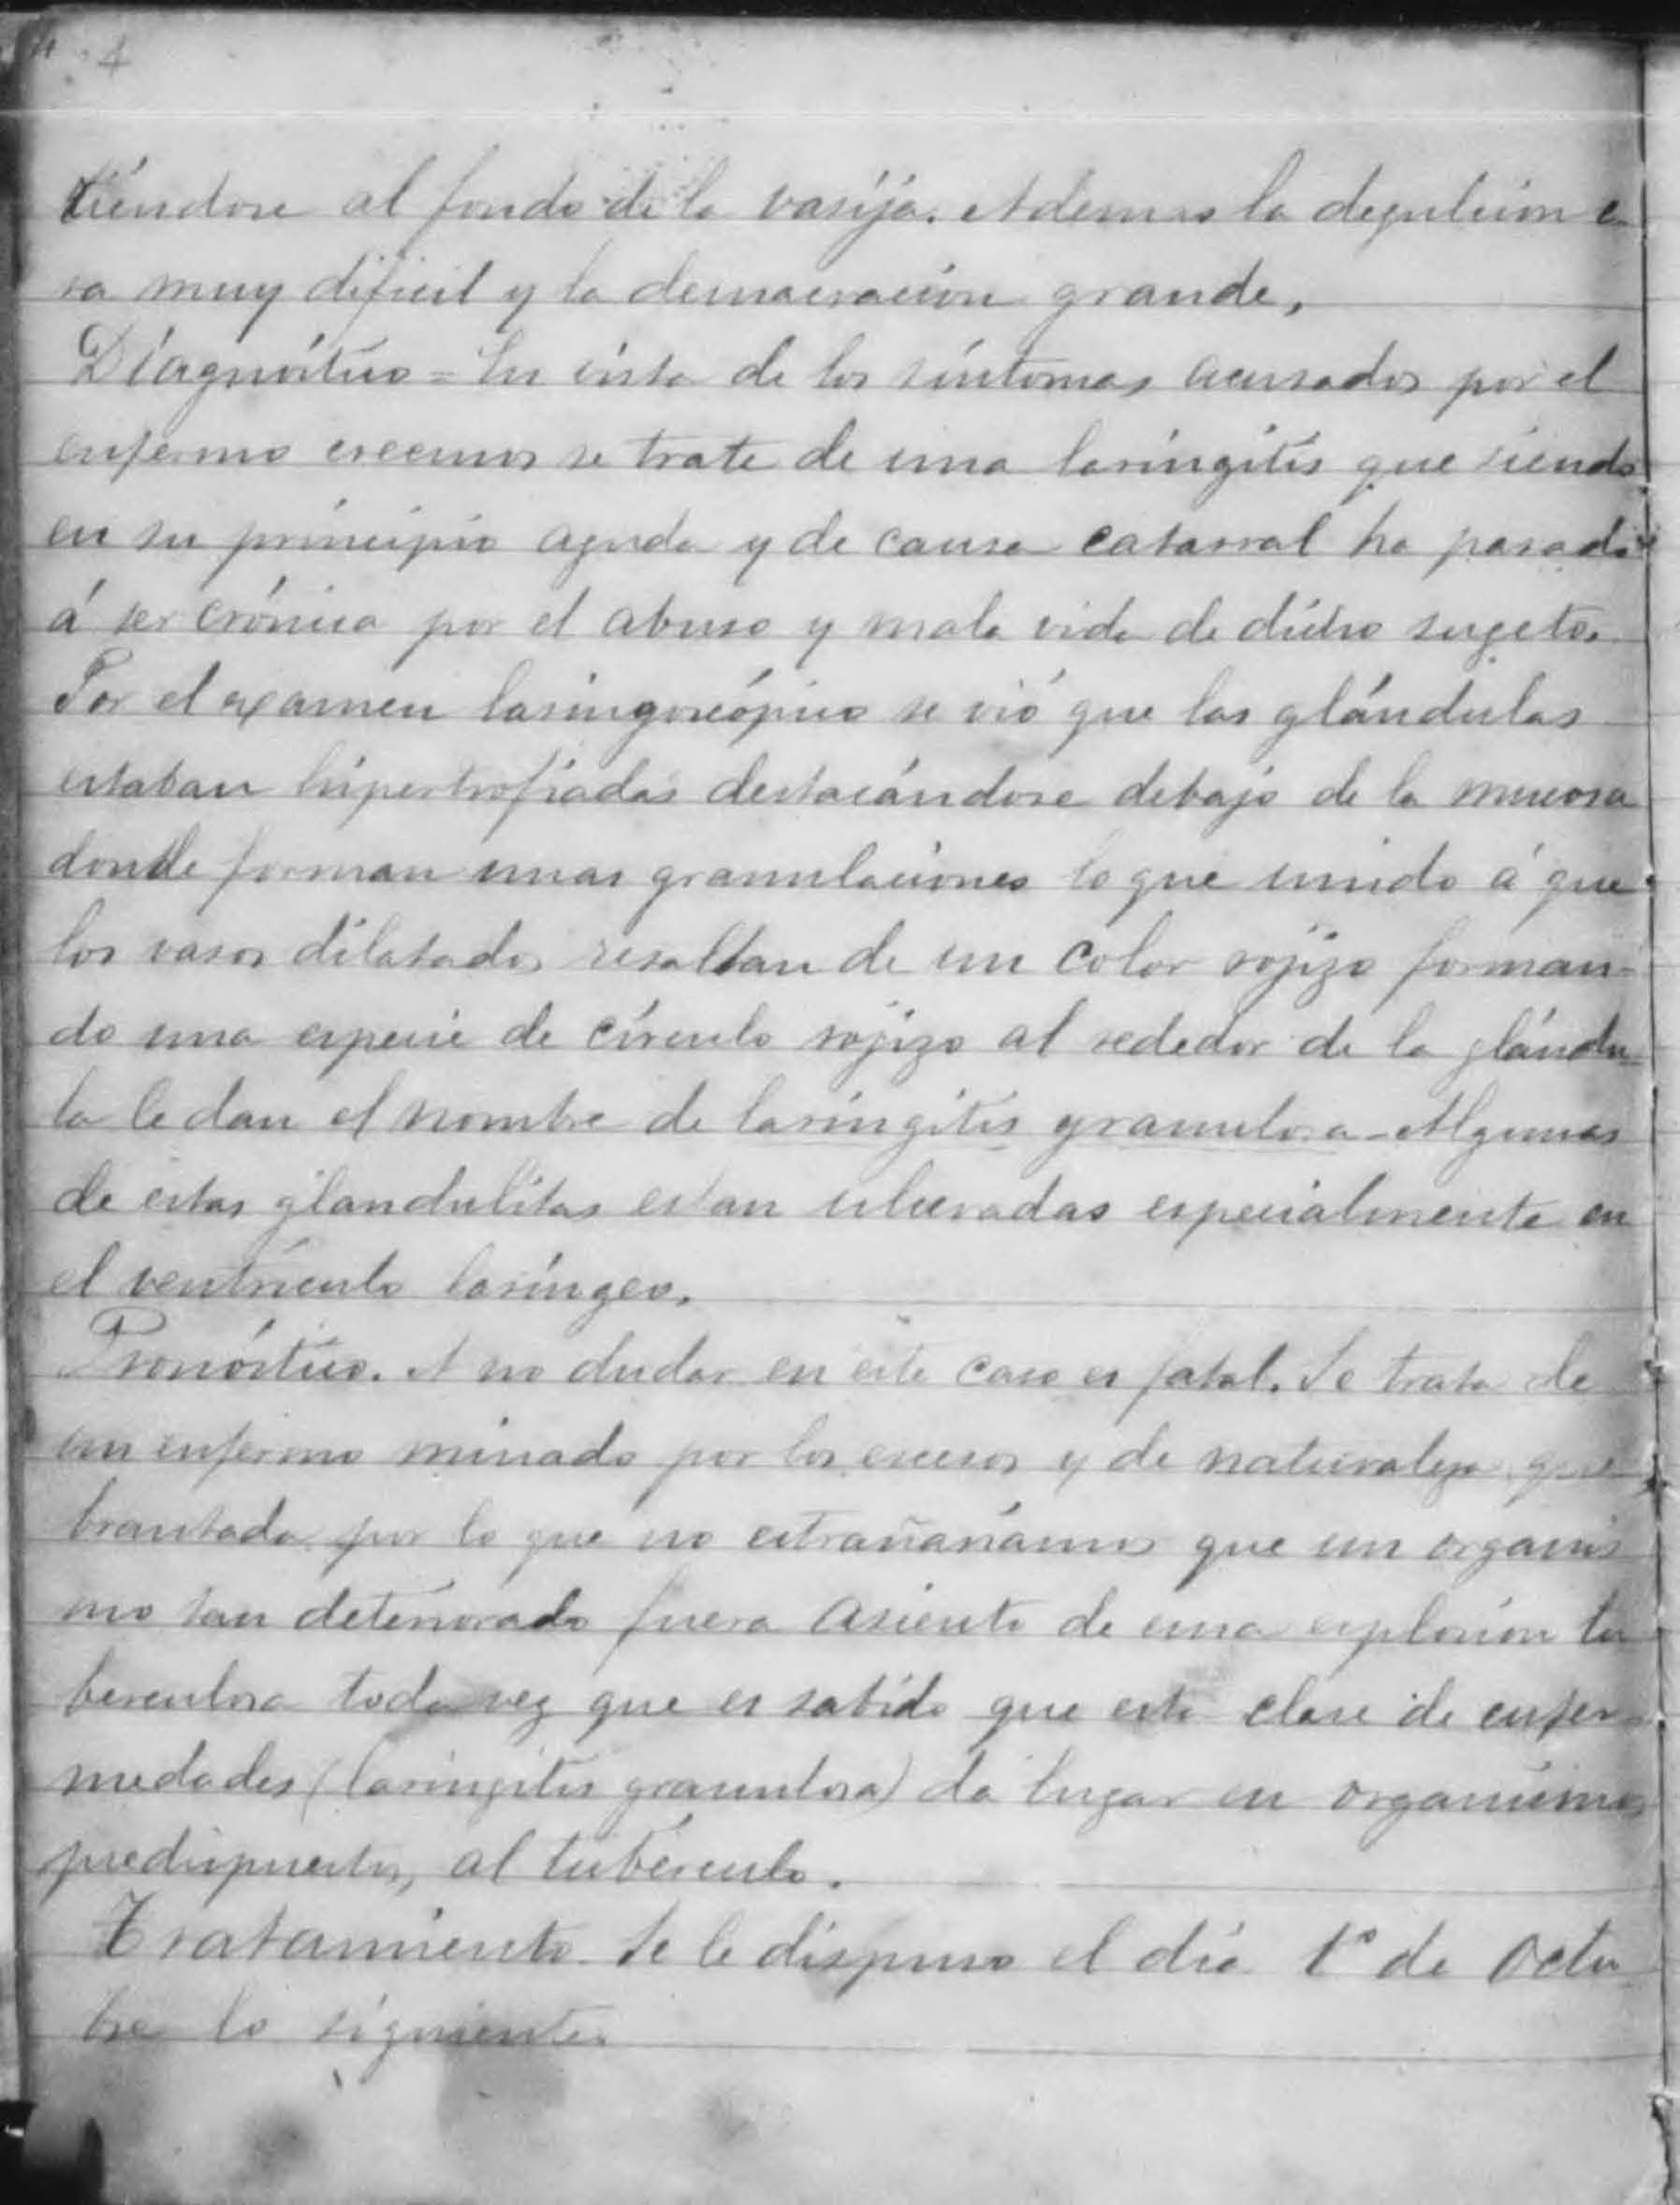 4
tiéndose al fondo de la vasija. Ademas la deglución e-
ra muy dificil y la demacración grande,
Diagnóstico = En vista de los síntomas acusados por el
enfermo creemos se trate de una laringitis que siendo
en su principio aguda y de causa catarral ha pasado
á ser crónica por el abuso y mala vida de dicho sugeto.
Por el examen laringoscópico se vió que las glándulas
estaban hipertrofiadas destacándose debajo de la mucosa
donde forman unas granulaciones lo que unido á que
los vasos dilatados resaltan de un color rojizo forman-
do una especie de círculo rojizo al rededor de la glándu-
la le dan el nombre de laringitis granulosa - Algunas
de estas glandulitas estan ulceradas especialmente en
el ventrículo laríngeo.
Pronóstico. A no dudar en este caso es fatal. Se trata de
un enfermo minado por los excesos y de naturaleza que
brantada por lo que no estrañaríamos que un organis
mo tan deteriorado fuera asiento de una explosion tu
berculosa toda vez que es sabido que esta clase de enfer-
medades (laringitis granulosa) da lugar en organismos
predispuestos, al tubérculo.
Tratamiento. Se le dispuso el día 1º de Octu
bre lo siguiente.